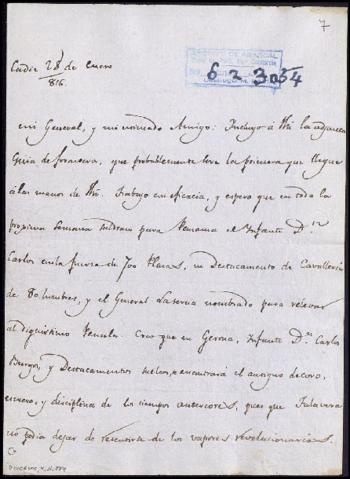 7
Cadiz 28 de Enero
816.
6 2 3034
mi General, y mi estimado Amigo: Incluyo á Vm la adjunta
Guia de forasteros, que probablemente sera la primera que llegue
á las manos de Vm. Trabajo con eficacia, y espero que en toda la
proxima semana saldran para Panama el Infante Dn
Carlos en la fuerza de 700 Plazas, un Destacamento de Cavalleria
de 80 hombres, y el General Laserna nombrado para relevar
al dignisimo Pezuela. Creo que en Gerona, Infante Dn Carlos
Burgos, y Destacamentos sueltos, encontrará el antiguo decoro,
esmero, y disciplina de los tiempos anteriores, pues que Talavera
no podia dejar de resentirse de los vapores revolucionarios.